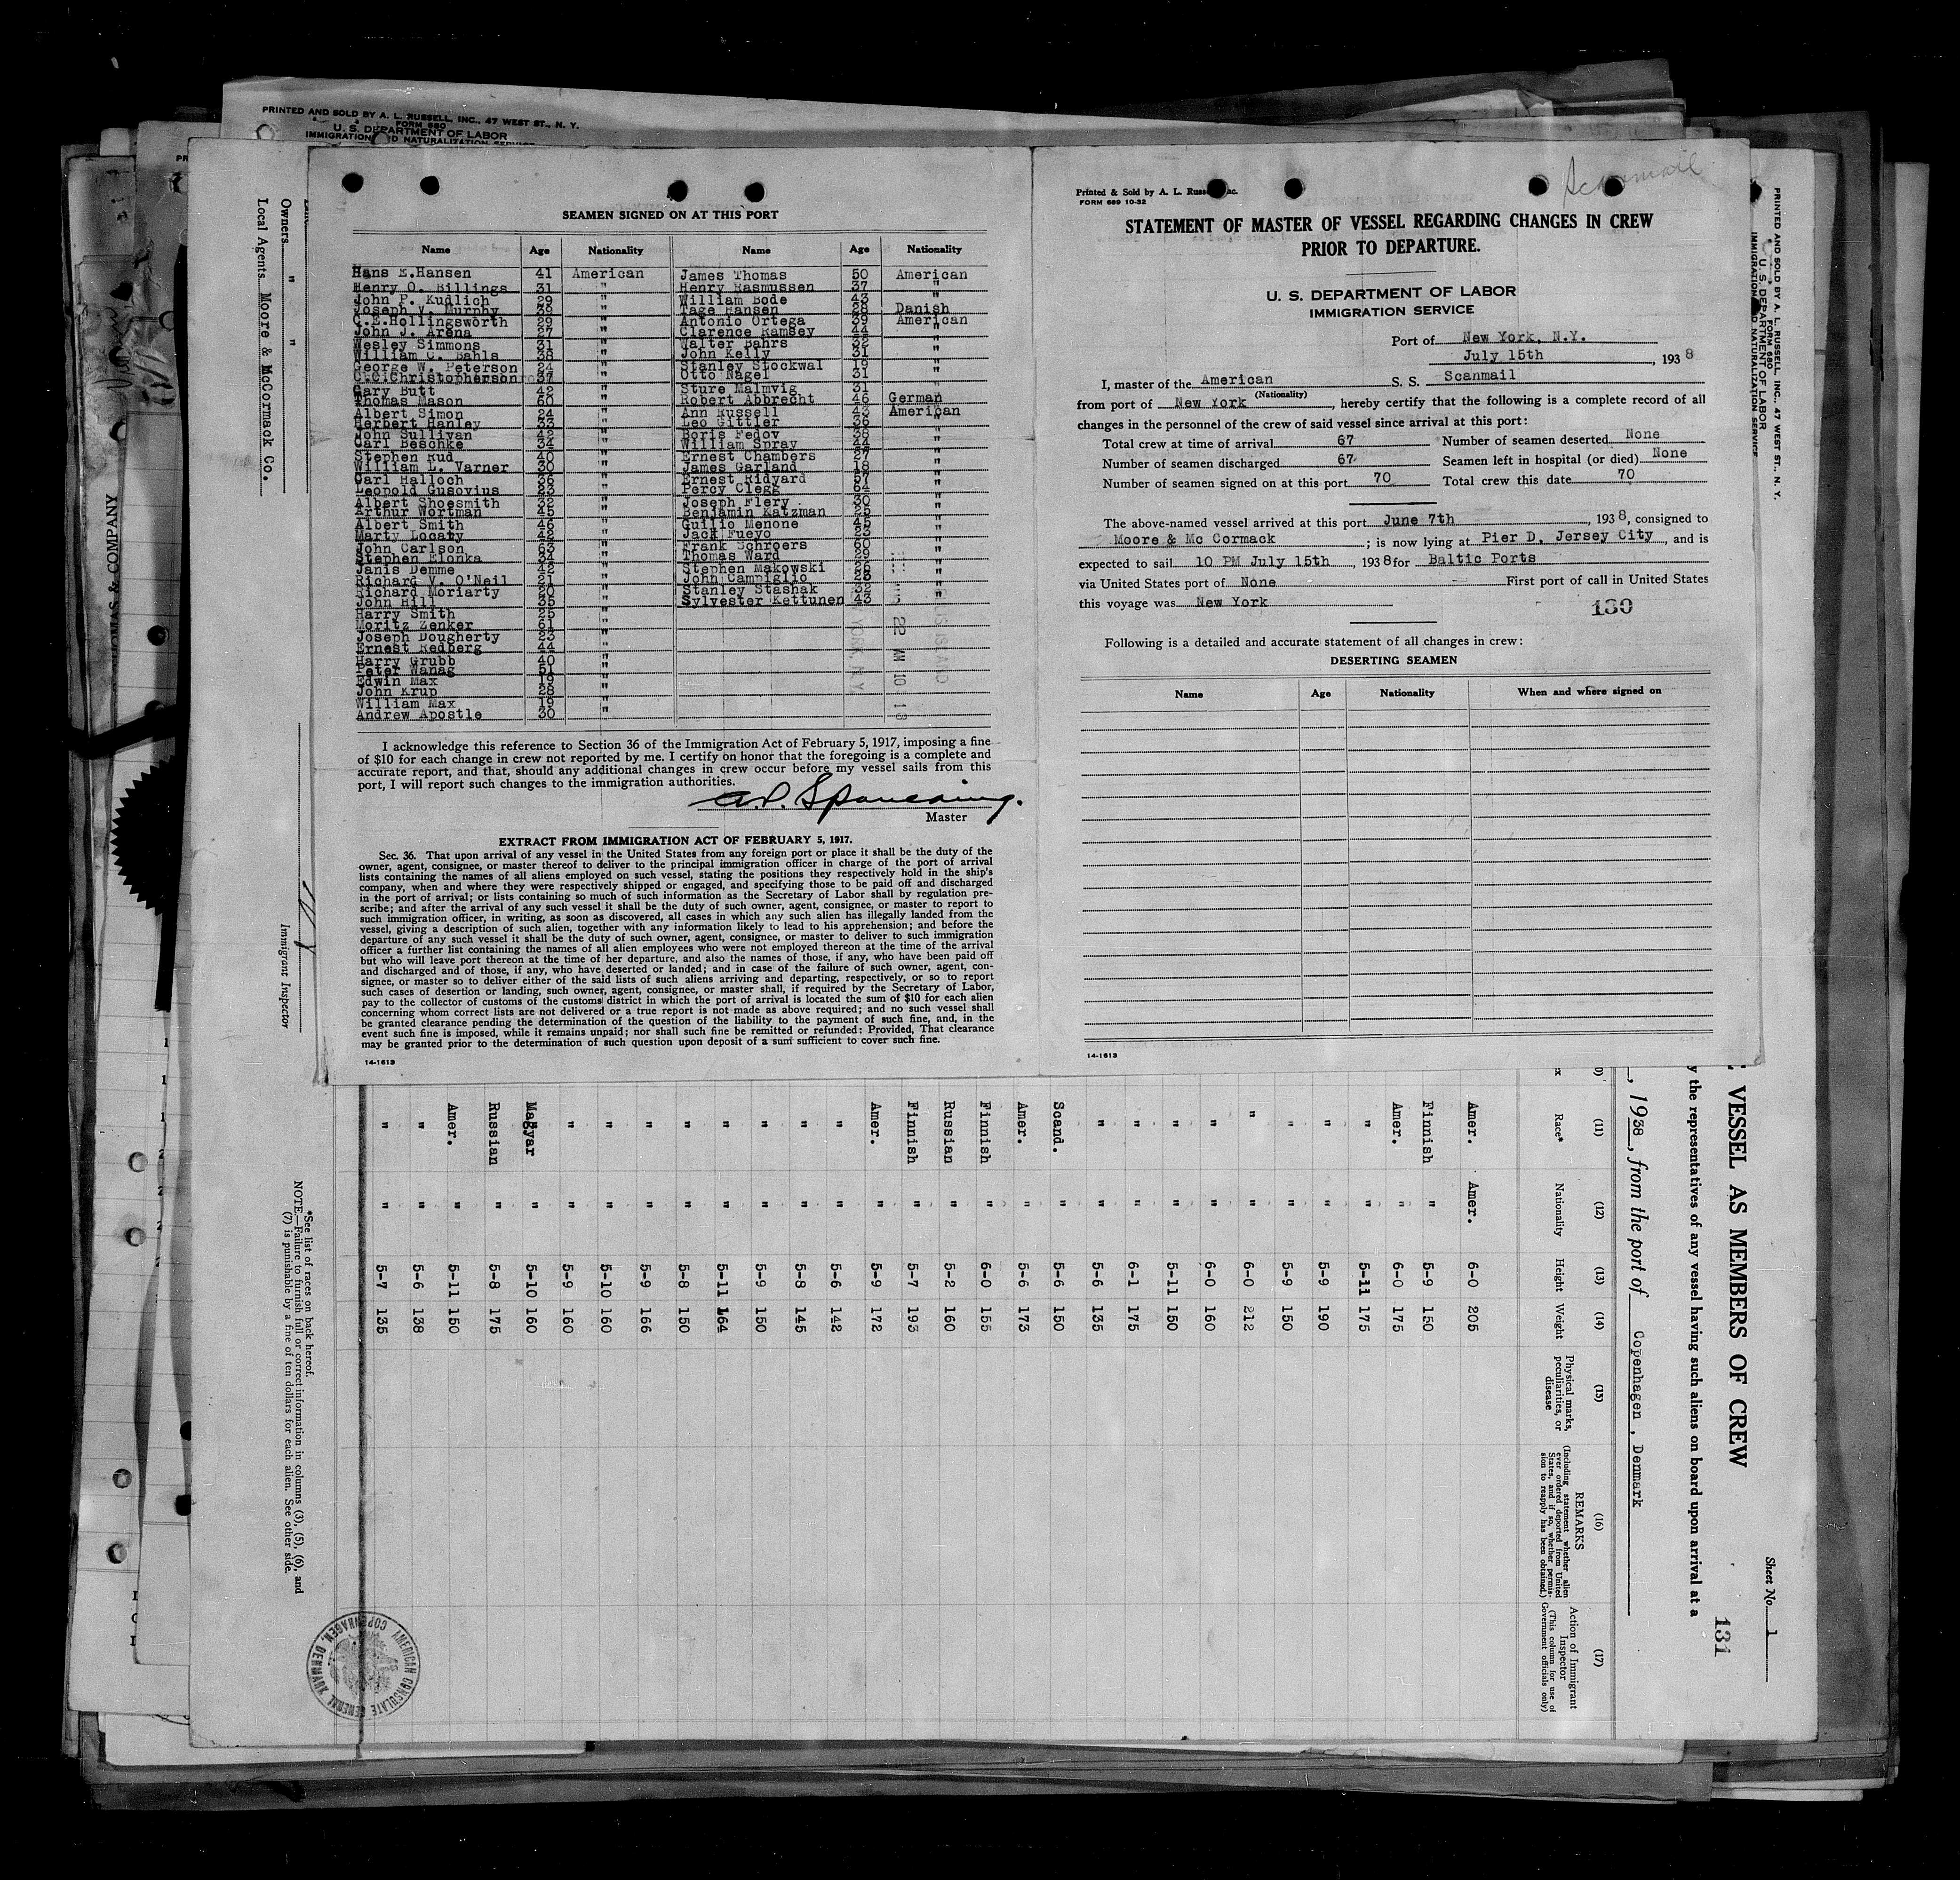 PRINTED AND SOLD BY A. L. RUSSELL, INC., 47 WEST ST., N. Y.
FORM 680
U. S. DEPARTMENT OF LABOR
Owners " "
Local Agents Moore & McCormack Co.
Immigrant Inspector
SEAMEN SIGNED ON AT THIS PORT
Name Age Nationality Name Age Nationality
Hans E.Hansen 41 American James Thomas 50 American
Henry O. Billings 31 " Henry Rasmussen 37 "
John P. Kudlich 29 William Bode 43
Joseph V. Murphy 39 " Tage Hansen 28 Danish
C.E.Hollingsworth 29 " Antonio Ortega 39 American
John J. Arena 27 Clarence Ramsey 44 "
Wesley Simmons 31 " Walter Bahrs 32 "
William C. Bahls 38 " John Kelly 31 "
George W. Peterson 24 " Stanley Stockwal 19 "
C.C.Christopherson 37 " Otto Nagel 31 "
Gary Butt 42 " Sture Malmvig 31 "
Thomas Mason 50 " Robert Abbrecht 46 German
Albert Simon 24 " Ann Russell 43 American
Herbert Hanley 33 " Leo Gittler 36 "
John Sullivan 42 " Boris Fedov 38 "
Carl Beschke 34 " William Spray 44 "
Stephen Rud 40 " Ernest Chambers 27 "
William L. Varner 30 " James Garland 18 "
Carl Halloch 36 " Ernest Ridyard 57 "
Leopold Gusovius 23 " Percy Clegg 64 "
Albert Shoesmith 32 " Joseph Flery 30 "
Arthur Wortman 45 " Benjamin Katzman 25 "
Albert Smith 46 " Guilio Menone 45 "
Marty Locaty 42 " Jack Fueyo 23 "
John Carlson 63 " Frank Schroers 60 "
Stephen Elonka 34 " Thomas Ward 29 "
Janis Demme 42 " Stephen Makowski 26 "
Richard V. O'Neil 21 " John Campiglio 23 "
Richard Moriarty 20 " Stanley Stashak 32 "
John Hill 35 " Sylvester Kettunen 43 "
Harry Smith 25 "
Moritz Zenker 61 "
Joseph Dougherty 23 "
Ernest Redberg 44 "
Harry Grubb 40 "
Peter Wanag 51 "
Edwin Max 19 "
John Krup 28 "
William Max 19 "
Andrew Apostle 30 "
I acknowledge this reference to Section 36 of the Immigration Act of February 5, 1917, imposing a fine
of $10 for each change in crew not reported by me. I certify on honor that the foregoing is a complete and
accurate report, and that, should any additional changes in crew occur before my vessel sails from this
port, I will report such changes to the immigration authorities.
Master
EXTRACT FROM IMMIGRATION ACT OF FEBRUARY 5, 1917.
Sec. 36. That upon arrival of any vessel in the United States from any foreign port or place it shall be the duty of the
owner, agent, consignee, or master thereof to deliver to the principal immigration officer in charge of the port of arrival
lists containing the names of all aliens employed on such vessel, stating the positions they respectively hold in the ship's
company, when and where they were respectively shipped or engaged, and specifying those to be paid off and discharged
in the port of arrival; or lists containing so much of such information as the Secretary of Labor shall by regulation pre-
scribe; and after the arrival of any such vessel it shall be the duty of such owner, agent, consignee, or master to report to
such immigration officer, in writing, as soon as discovered, all cases in which any such alien has illegally landed from the
vessel, giving a description of such alien, together with any information likely to lead to his apprehension; and before the
departure of any such vessel it shall be the duty of such owner, agent, consignee, or master to deliver to such immigration
officer a further list containing the names of all alien employees who were not employed thereon at the time of the arrival
but who will leave port thereon at the time of her departure, and also the names of those, if any, who have been paid off
and discharged and of those, if any, who have deserted or landed; and in case of the failure of such owner, agent, con-
signee, or master so to deliver either of the said lists of such aliens arriving and departing, respectively, or so to report
such cases of desertion or landing, such owner, agent, consignee, or master shall, if required by the Secretary of Labor,
pay to the collector of customs of the customs district in which the port of arrival is located the sum of $10 for each alien
concerning whom correct lists are not delivered or a true report is not made as above required; and no such vessel shall
be granted clearance pending the determination of the question of the liability to the payment of such fine, and, in the
event such fine is imposed, while it remains unpaid; nor shall such fine be remitted or refunded: Provided, That clearance
may be granted prior to the determination of such question upon deposit of a sum sufficient to cover such fine.
14-1613
Scanmail
Printed & Sold by A. L. Russ
FORM 689 10-32
STATEMENT OF MASTER OF VESSEL REGARDING CHANGES IN CREW
PRIOR TO DEPARTURE.
U. S. DEPARTMENT OF LABOR
IMMIGRATION SERVICE
Port of New York, N.Y.
July 15th, 1938
I, master of the American S. S. Scanmail
(Nationality)
from port of New York, hereby certify that the following is a complete record of all
changes in the personnel of the crew of said vessel since arrival at this port:
Total crew at time of arrival 67 Number of seamen deserted None
Number of seamen discharged 67 Seamen left in hospital (or died) None
Number of seamen signed on at this port 70 Total crew this date 70
The above-named vessel arrived at this port June 7th, 1938, consigned to
Moore & Mc Cormack; is now lying at Pier D, Jersey City, and is
expected to sail 10 PM July 15th, 1938 for Baltic Ports
via United States port of None First port of call in United States
this voyage was New York
130
Following is a detailed and accurate statement of all changes in crew:
DESERTING SEAMEN
Name Age Nationality When and where signed on
14-1613
PRINTED AND SOLD BY A. L. RUSSELL, INC., 47 WEST ST., N. Y.
FORM 680
U. S. DEPARTMENT OF LABOR
IMMIGRATION AND NATURALIZATION SERVICE
Sheet No. 1
131
VESSEL AS MEMBERS OF CREW
the representatives of any vessel having such aliens on board upon arrival at a
, 1938, from the port of Copenhagen, Denmark
(11) (12) (13) (14) (15) (16) (17)
Race* Nationality Height Weight Physical marks, peculiarities, or disease
REMARKS (Including statement whether alien ever ordered deported from United States, and if so, whether permission to reapply has been obtained.)
Action of Immigrant Inspector (This column for use of Government officials only)
Amer. Amer. 6-0 205
Finnish " 5-9 150
Amer. " 6-0 175
" " 5-11 175
" " 5-9 190
" " 5-9 150
" " 6-0 212
" " 6-0 160
" " 5-11 150
" " 6-1 175
" " 5-6 135
Scand. " 5-6 150
Amer. " 5-6 173
Finnish " 6-0 155
Russian " 5-2 160
Finnish " 5-7 193
Amer. " 5-9 172
" " 5-6 142
" " 5-8 145
" " 5-9 150
" " 5-11 164
" " 5-8 150
" " 5-9 166
" " 5-10 160
" " 5-9 160
Magyar " 5-10 160
Russian " 5-8 175
Amer. " 5-11 150
" " 5-6 138
" " 5-7 135
*See list of races on back hereof.
NOTE.—Failure to furnish full or correct information in columns (3), (5), (6), and
(7) is punishable by a fine of ten dollars for each alien. See other side.
AMERICAN CONSULATE GENERAL
COPENHAGEN, DENMARK
& COMPANY